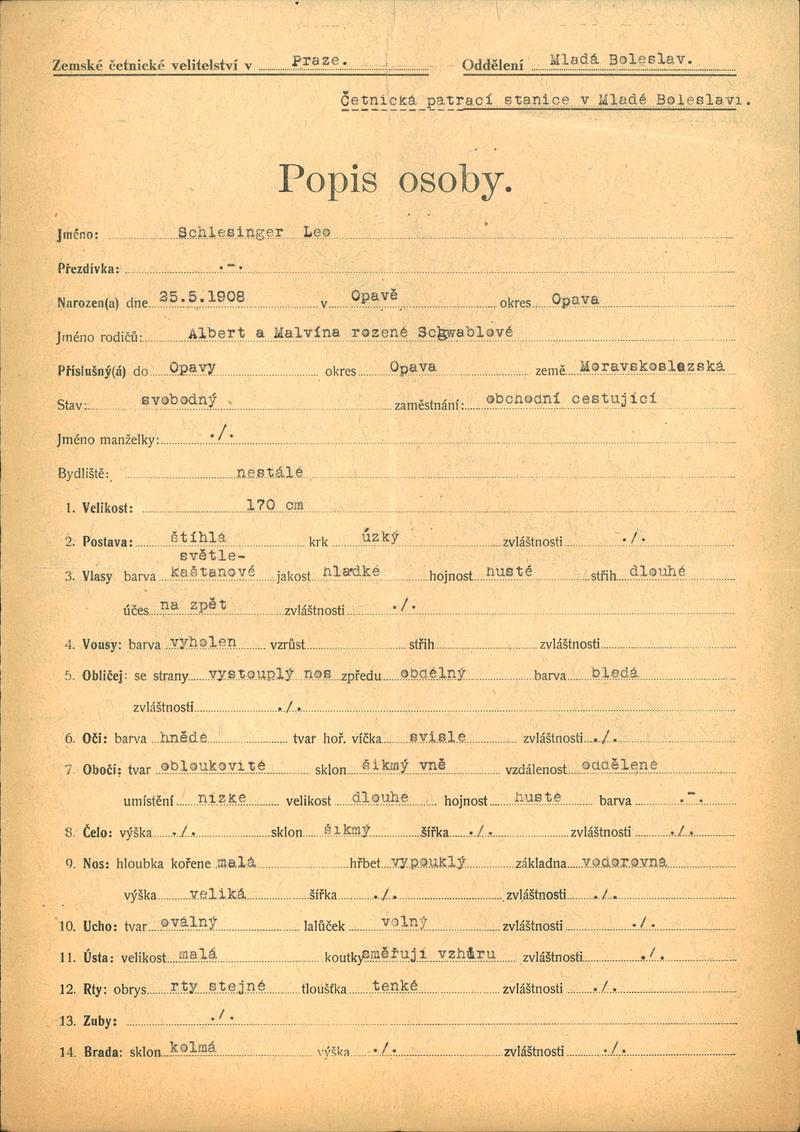 Zemské četnické velitelství v Praze. Oddělení Mladá Boleslav.
Četnická patrací stanice v Mladé Boleslavi.
Popis osoby.
Jméno: Schlesinger Leo
Přezdívka: .-.
Narozen(a) dne 35.5.1908 v Opavě okres Opava
Jméno rodičů: Albert a Malvína rozené Schwablové
Příslušný(á) do Opavy okres Opava země Moravskoslezská
Stav: svobodný zaměstnání: obchodní cestující
Jméno manželky: ./.
Bydliště: nestálé
1. Velikost: 170 cm
2. Postava: štíhlá krk úzký zvláštnosti ./.
světle-
3. Vlasy barva kaštanové jakost hladké hojnost husté střih dlouhé
účes na zpět zvláštnosti ./.
4. Vousy: barva vyholen vzrůst střih zvláštnosti
5. Obličej: se strany vystouplý nos zpředu obdélný barva bledá
zvláštnosti ./.
6. Oči: barva hnědé tvar hoř. víčka svisle zvláštnosti ./.
7. Obočí: tvar obloukovité sklon šikmý vně vzdálenost oddělené
umístění nízke velikost dlouhe hojnost husté barva .-.
8. Čelo: výška ./. sklon šikmý šířka ./. zvláštnosti ./.
9. Nos: hloubka kořene malá hřbet vypouklý základna vodorovná
výška veliká šířka ./. zvláštnosti ./.
10. Ucho: tvar oválný lalůček volný zvláštnosti ./.
11. Ústa: velikost malá koutky směřují vzhůru zvláštnosti ./.
12. Rty: obrys rty stejné tloušťka tenké zvláštnosti ./.
13. Zuby: ./.
14. Brada: sklon kolmá výška ./. zvláštnosti ./.